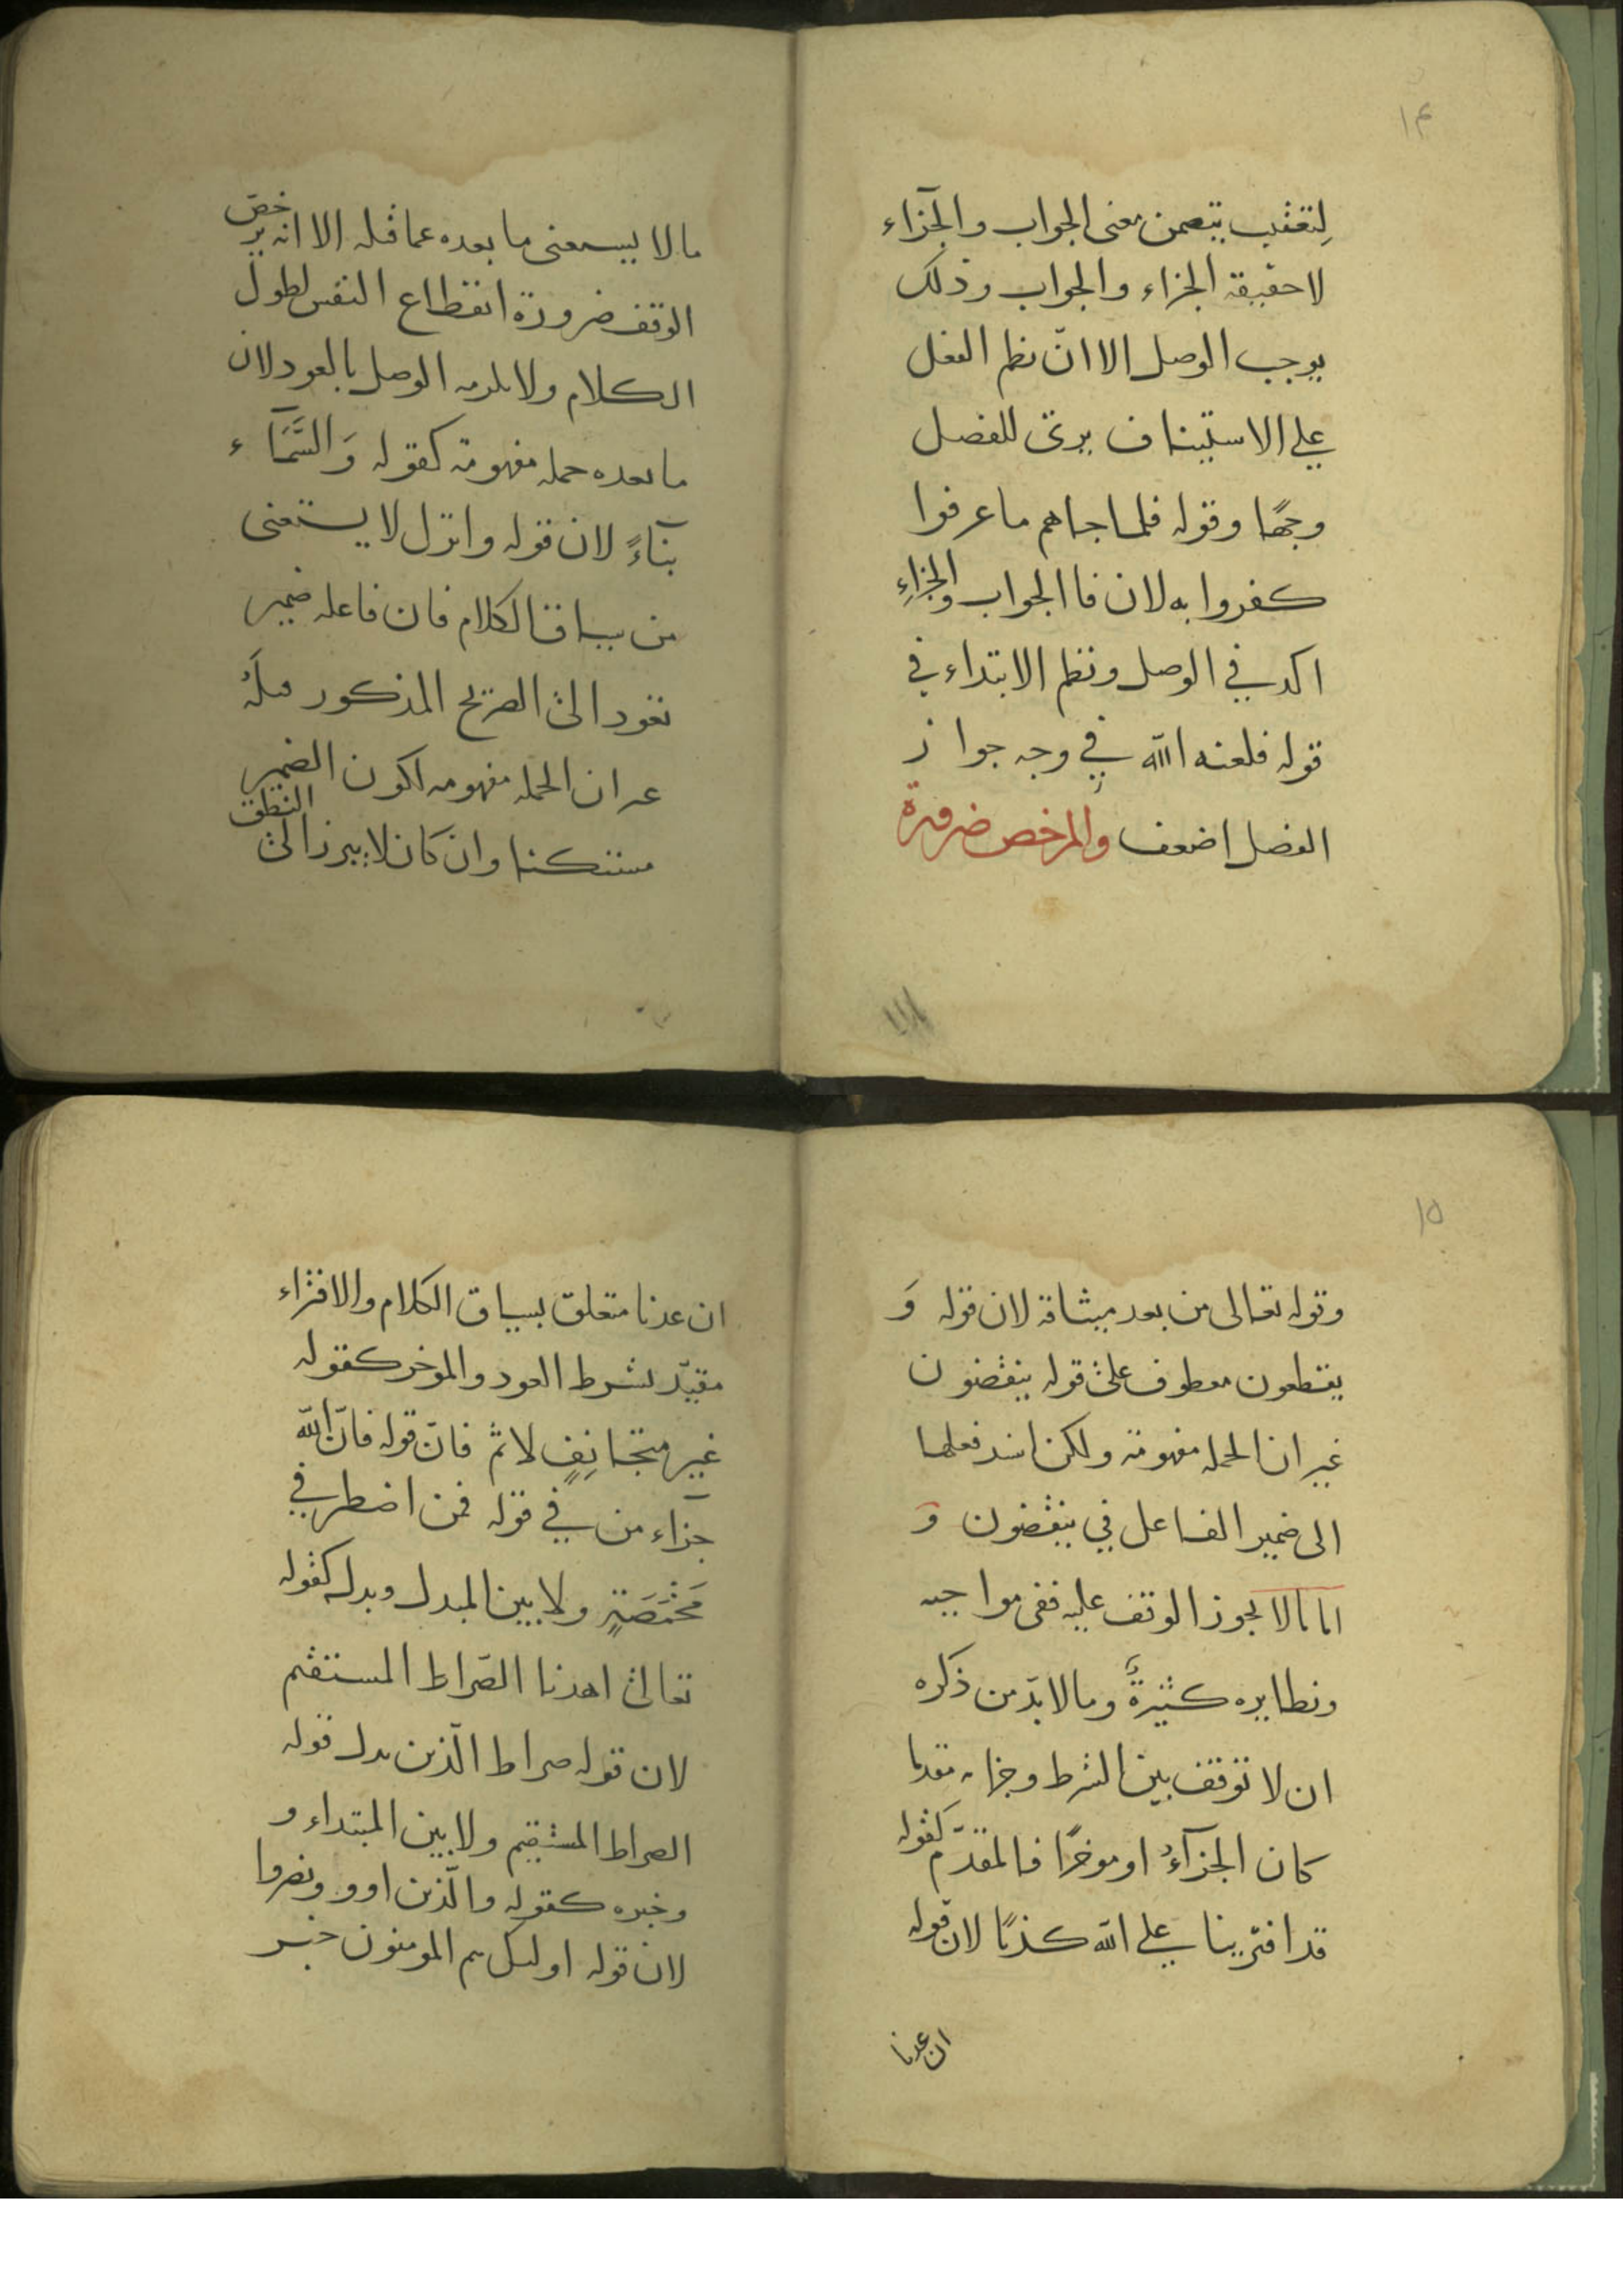 ١٤
لتعقيب يتضمن معنى الجواب والجزاء
لا حقيقة الجزاء والجواب وذلك
يوجب الوصل الا انّ نظم الفعل
على الاستيناف يرى للفصل
وجهًا وقوله فلما جاهم ما عرفوا
كفروا به لان فا الجواب والجزاءِ
اكد في الوصل ونظم الابتداء في
قوله فلعنه الله في وجه جواز
الفصل اضعف والمرخص ضرورة
ما لا يستغنى ما بعده عما قبله الا انه يرخص
الوقف ضرورة انقطاع النفس لطول
الكلام ولا يلزمه الوصل بالعود لان
ما بعده جمله مفهومة كقوله وَالسَّمَآء
بنآءً لان قوله وانزل لا يستغنى
من سياق الكلام فان فاعله ضمير
يعود الى الصريح المذكور قبلَهُ
غير ان الجمله مفهومه لكون الضمير
مستكنا وان كان لا يبرز الى النطق
١٥
وقوله تعالى من بعد ميثاقه لان قوله وَ
يقطعون معطوف على قوله ينقضون
غير ان الجمله مفهومة ولكن اسند فعلها
الى ضمير الفاعل في ينقضون وَ
اما ما لا يجوز الوقف عليه ففى مواجبه
ونظايره كثيرةٌ وما لا بدّ من ذكره
ان لا توقف بين الشرط وجزايه مقدما
كان الجزآءُ او موخرًا فالمقدّم كقوله
قد افترينا على الله كذبًا لان قوله
ان عدنا
ان عدنا متعلق بسياق الكلام والافتراء
مقيّد بشرط العود والموخر كقوله
غير متجانِفٍ لاثم فانّ قوله فانّ الله
جزآء من في قوله فمن اضطر في
مَخْمَصَةٍ ولا بين المبدل وبدله كقوله
تعالى اهدنا الصّراط المستقيم
لان قوله صراط الّذين بدل قوله
الصراط المستقيم ولا بين المبتداء و
وخبره كقوله والّذين اووا ونصروا
لان قوله اولئك هم المومنون خبر